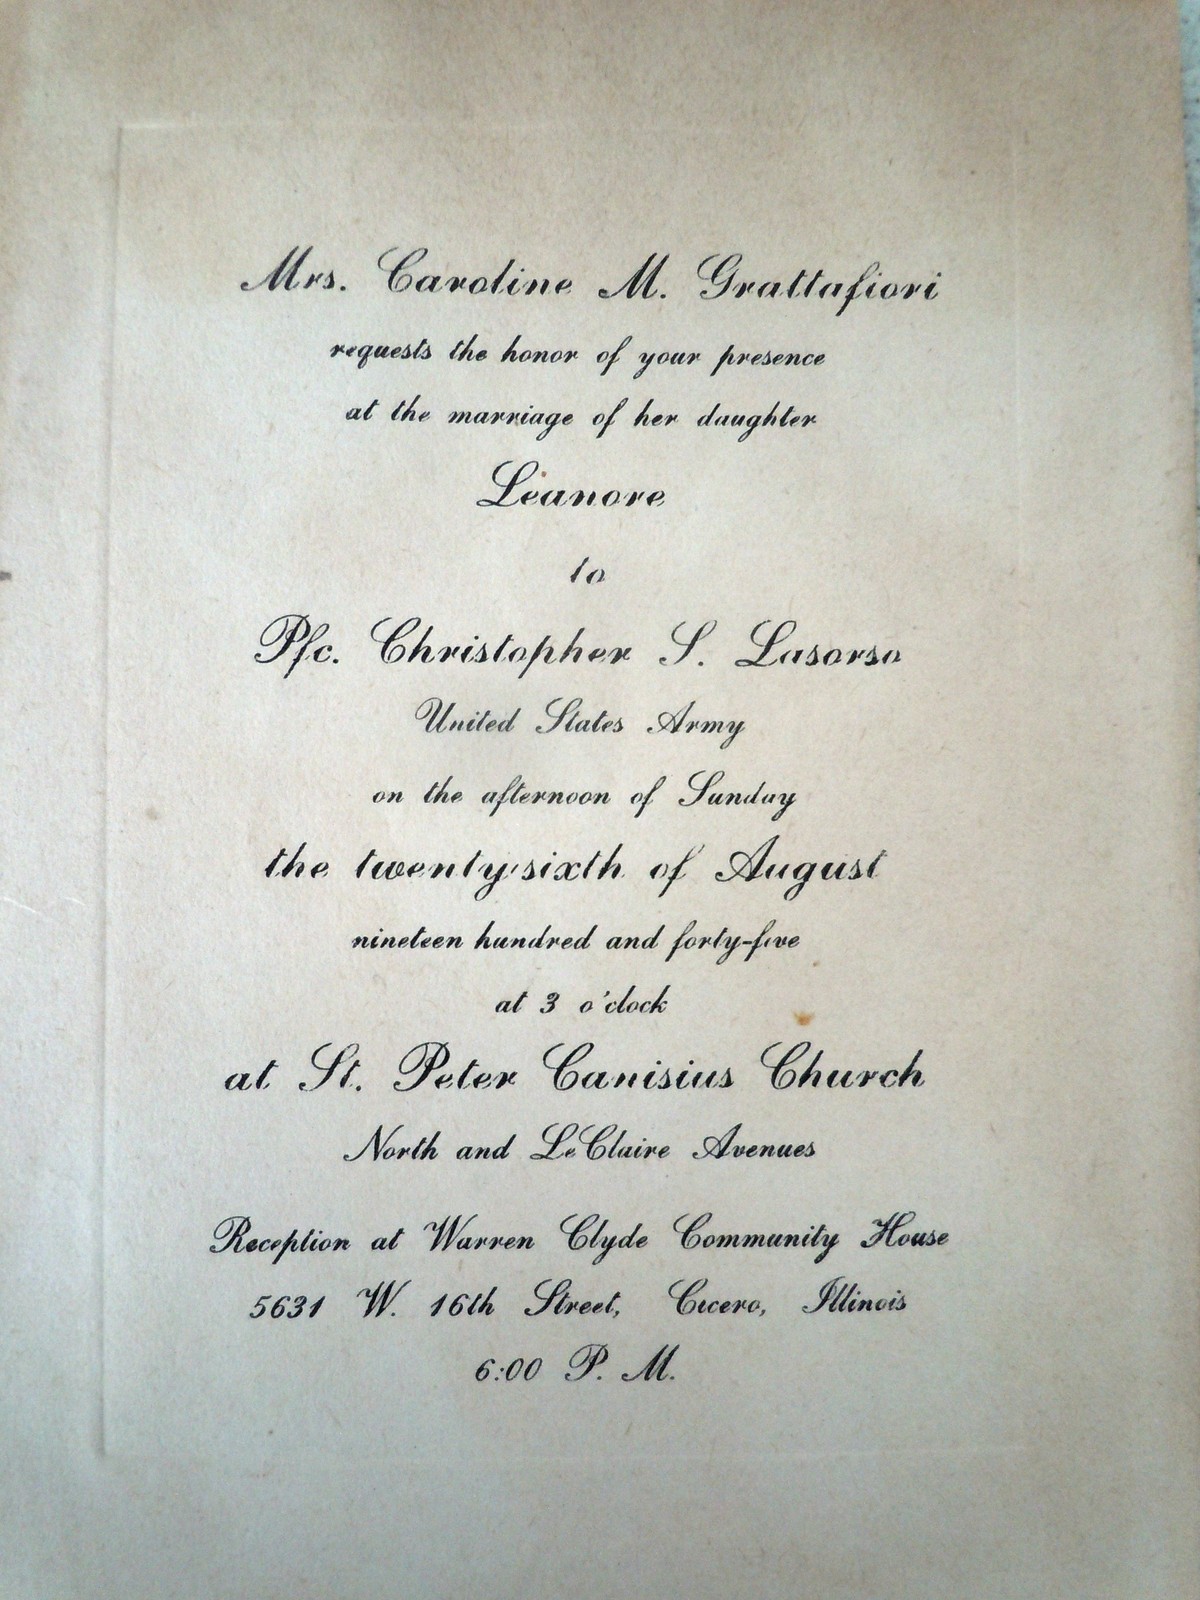 Mrs. Caroline M. Grattafiori
requests the honor of your presence
at the marriage of her daughter
Leanore
to
Pfc. Christopher S. Lasorsa
United States Army
on the afternoon of Sunday
the twenty-sixth of August
nineteen hundred and forty-five
at 3 o'clock
at St. Peter Canisius Church
North and LeClaire Avenues
Reception at Warren Clyde Community House
5631 W. 16th Street, Cicero, Illinois
6:00 P. M.